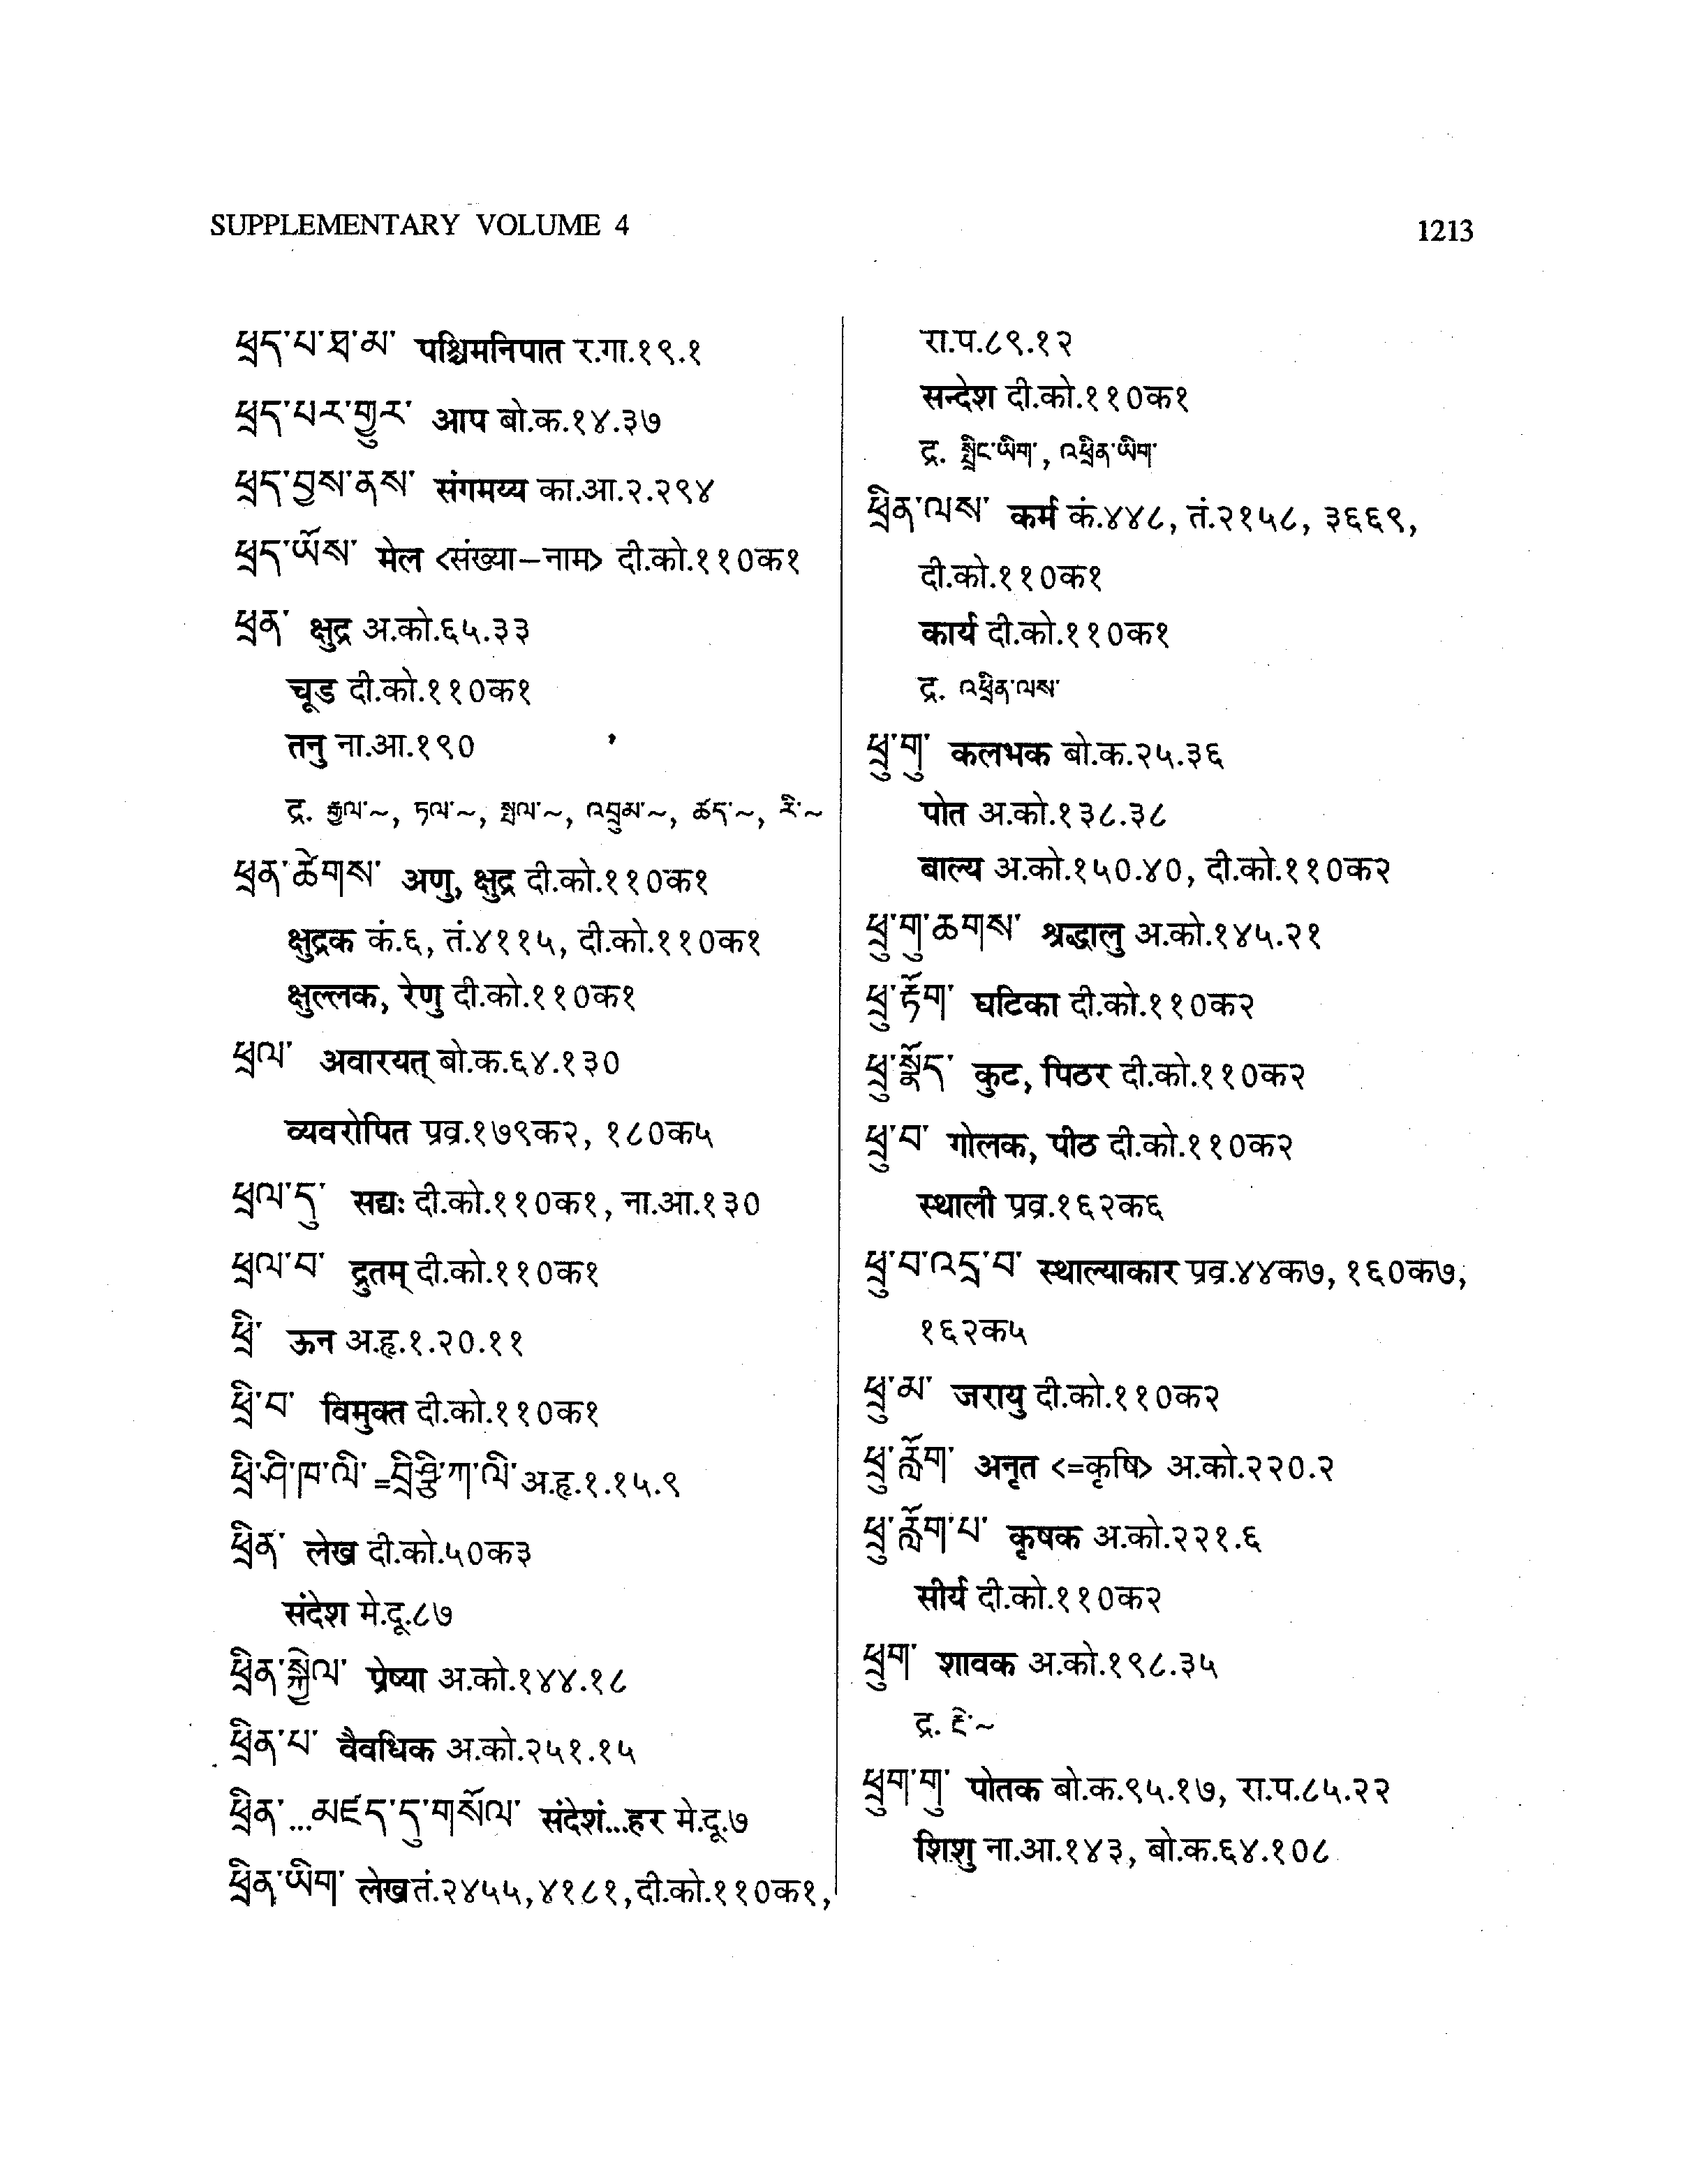 SUPPLEMENTARY VOLUME 4
1213
ཕྲད་པ་ཐ་མ་ पश्चिमनिपात र.गा.१९.१
ཕྲད་པར་གྱུར་ आप बो.क.१४.३७
ཕྲད་བྱས་ནས་ संगमय्य का.आ.२.२९४
ཕྲད་ཡོས་ मेल <संख्या–नाम> दी.को.११०क१
ཕྲན་ क्षुद्र अ.को.६५.३३
चूड दी.को.११०क१
तनु ना.आ.१९०
द्र. རྒྱལ་~, ཏལ་~, སྤྲལ་~, འབྲུམ་~, ཚད་~, རི་~
ཕྲན་ཚེགས་ अणु, क्षुद्र दी.को.११०क१
क्षुद्रक कं.६, तं.४११५, दी.को.११०क१
क्षुल्लक, रेणु दी.को.११०क१
ཕྲལ་ अवारयत् बो.क.६४.१३०
व्यवरोपित प्रव्र.१७९क२, १८०क५
ཕྲལ་དུ་ सद्यः दी.को.११०क१, ना.आ.१३०
ཕྲལ་བ་ द्रुतम् दी.को.११०क१
ཕྲི་ ऊन अ.हृ.१.२०.११
ཕྲི་བ་ विमुक्त दी.को.११०क१
ཕྲི་ཤི་ཁ་ལི་ =བྲི་ཤྩི་ཀ་ལི་ अ.हृ.१.१५.९
ཕྲིན་ लेख दी.को.५०क३
संदेश मे.दू.८७
ཕྲིན་སྐྱེལ་ प्रेष्या अ.को.१४४.१८
ཕྲིན་པ་ वैवधिक अ.को.२५१.१५
ཕྲིན་...མཛད་དུ་གསོལ་ संदेशं...हर मे.दू.७
ཕྲིན་ཡིག་ लेख तं.२४५५,४१८१,दी.को.११०क१,
रा.प.८९.१२
सन्देश दी.को.११०क१
द्र. སྤྲིང་ཡིག་, འཕྲིན་ཡིག་
ཕྲིན་ལས་ कर्म कं.४४८, तं.२१५८, ३६६९,
दी.को.११०क१
कार्य दी.को.११०क१
द्र. འཕྲིན་ལས་
ཕྲུ་གུ་ कलभक बो.क.२५.३६
पोत अ.को.१३८.३८
बाल्य अ.को.१५०.४०, दी.को.११०क२
ཕྲུ་གུ་ཆགས་ श्रद्धालु अ.को.१४५.२१
ཕྲུ་ཏོག་ घटिका दी.को.११०क२
ཕྲུ་སྣོད་ कुट, पिठर दी.को.११०क२
ཕྲུ་བ་ गोलक, पीठ दी.को.११०क२
स्थाली प्रव्र.१६२क६
ཕྲུ་བ་འདྲ་བ་ स्थाल्याकार प्रव्र.४४क७, १६०क७,
१६२क५
ཕྲུ་མ་ जरायु दी.को.११०क२
ཕྲུ་རློག་ अनृत <=कृषि> अ.को.२२०.२
ཕྲུ་རློག་པ་ कृषक अ.को.२२१.६
सीर्य दी.को.११०क२
ཕྲུག་ शावक अ.को.१९८.३५
द्र. ངེ་~
ཕྲུག་གུ་ पोतक बो.क.९५.१७, रा.प.८५.२२
शिशु ना.आ.१४३, बो.क.६४.१०८